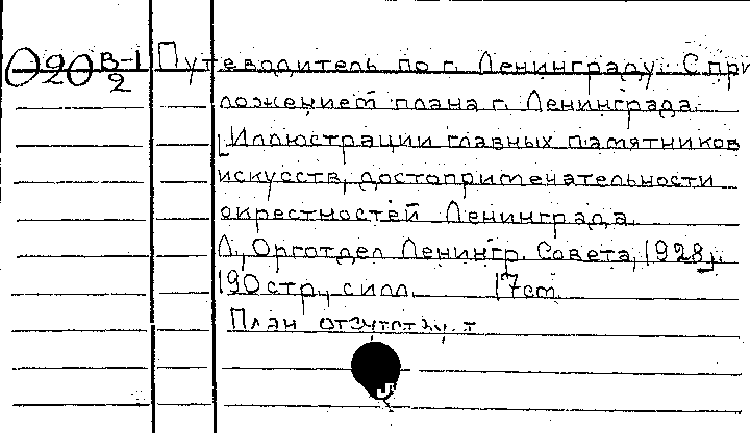 О20 В-1/2 Путеводитель по г. Ленинграду. С при
ложением плана г. Ленинграда.
[Иллюстрации главных памятников
искусств, достопримечательности
окрестностей Ленинграда.
Л., Орготдел Ленингр. Совета, 1928].
190 стр., с илл. 17 cm.
План отсутству т